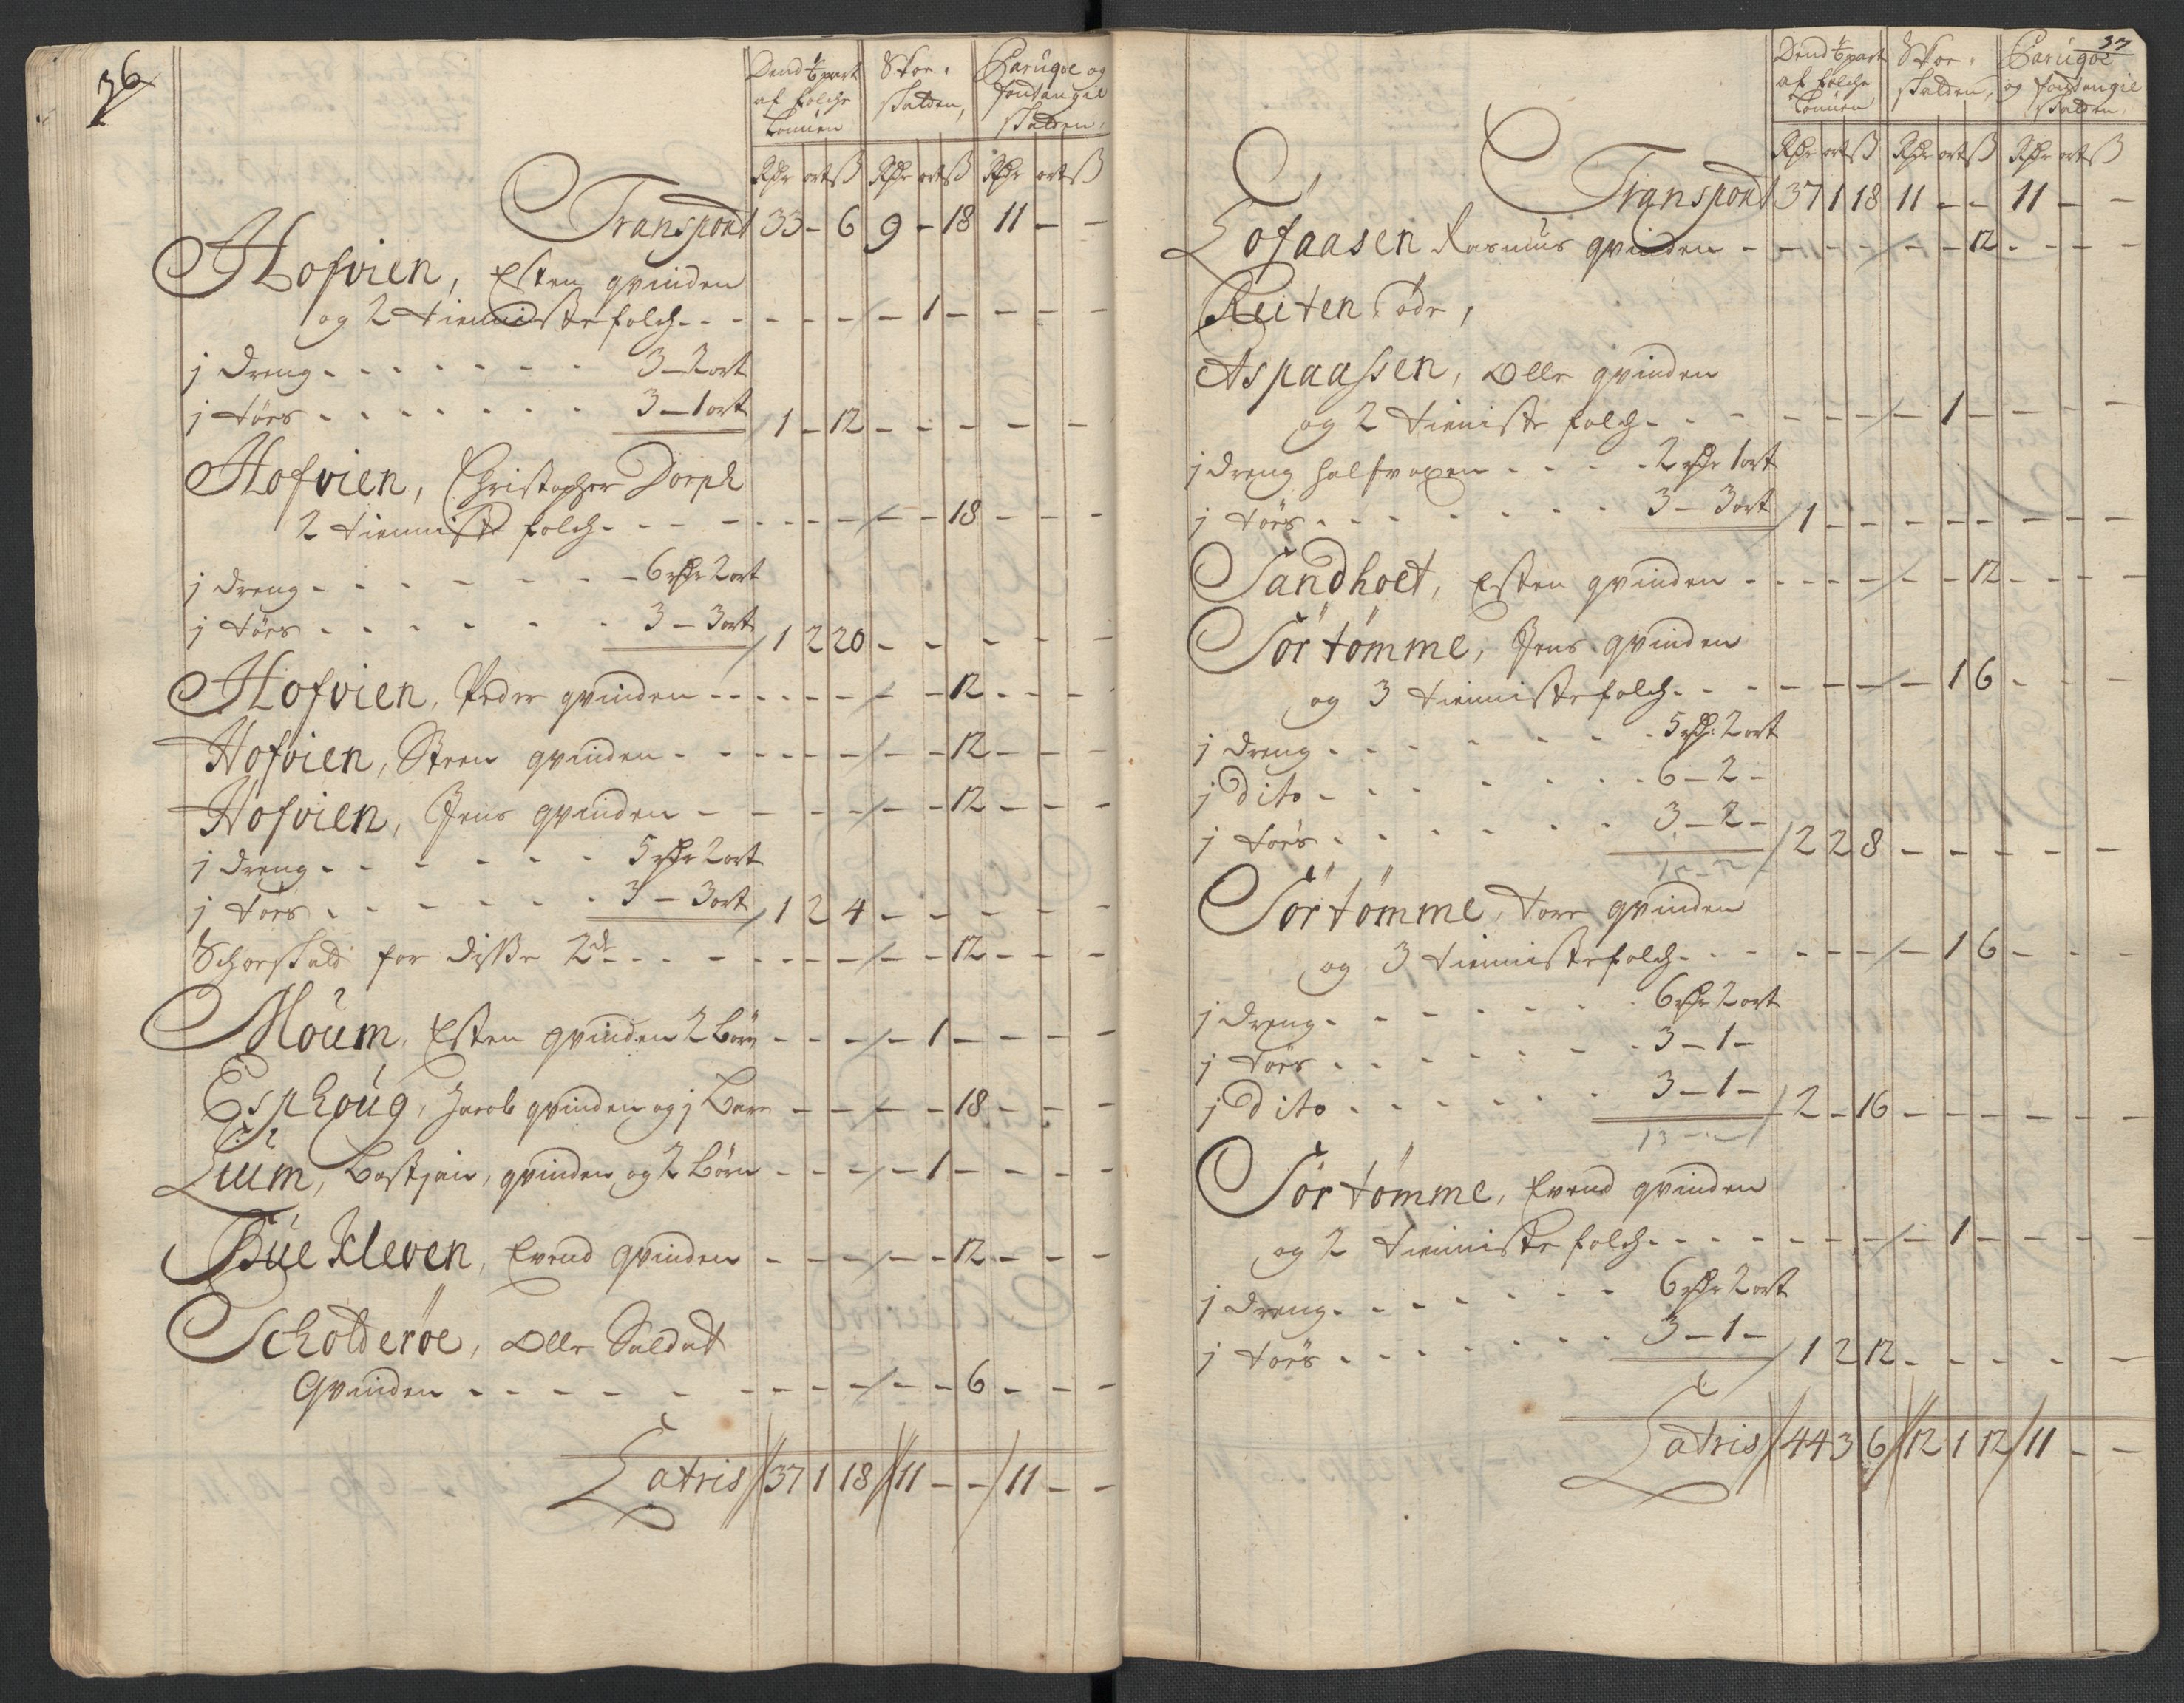 36
Dend 1/6 part af folche Lönnen | Skoe skatten, | Paruqve og fontangie skatten.
Rdr ort ß | Rdr ort ß | Rdr ort ß
Transport 33 - 6 9 - 18 11 - -
Hofvien, Esten qvinden
og 2 tiennistefolch - - - - - / - 1 - - - -
j dreng - - - - - - 3 - 2 ort
j tøes - - - - - - 3 - 1 ort / 1 - 12 - - - - -
Hofvien, Christopher Dorph
2 tienniste folch - - - - - - - / - - 18 - - -
j dreng - - - - - - 6 rdr 2 ort
j tøes - - - - - - 3 - 3 ort / 1 2 20 - - - - -
Hofvien, Peder qvinden - - - - - - / - - 12 - - -
Hofvien, Steen qvinden - - - - - - / - - 12 - - -
Hofvien, Jens qvinden - - - - - / - - 12 - - -
j dreng - - - - - - 5 rdr 2 ort
j tøes - - - - - - 3 - 3 ort / 1 2 4 - - - - - -
Schoeskatt for disse 2de - - - - - - - / - - 12 - - -
Moum, Esten qvinden 2 børn - - - - / - 1 - - - -
Esphoug, Jacob qvinden og j barn - - - / - - 18 - - -
Lium, Bastjan, qvinden og 2 børn - - - / - 1 - - - -
Bue kleven, Evend qvinden - - - - / - - 12 - - -
Scholderøe, Olle Saldat
Qvinden - - - - - - - - - / - - 6 - - -
Latris // 37 1 18 // 11 - - / 11 - -
37
Dend 1/6 part af folche Lönnen | Skoe skatten, | Paruqve og fontangie skatten.
Rdr ort ß | Rdr ort ß | Rdr ort ß
Transport 37 1 18 11 - - 11 - -
Lofaasen Rasmus qvinden - - - - / - - 12 - - -
Reiten øde,
Aspaassen, Olle qvinden
og 2 tieniste folch - - - - - - / - 1 - - - -
j dreng halfvoxen - - - - 2 rdr 1 ort
j tøes - - - - - - 3 - 3 ort / 1 - - - - - - - -
Sandhoet, Esten qvinden - - - - - / - - 12 - - -
Sør tømme, Jens qvinden
og 3 tiennistefolch - - - - - - / - 1 6 - - -
j dreng - - - - - - 5 rdr 2 ort
j dito - - - - - - 6 - 2 -
j tøes - - - - - - 3 - 2 - / 2 2 8 - - - - - -
Sør tømme, Tore qvinden
og 3 tiennistefolch - - - - - - / - 1 6 - - -
j dreng - - - - - - 6 rdr 2 ort
j tøes - - - - - - 3 - 1 -
j dito - - - - - - 3 - 1 - / 2 - 16 - - - - - -
Sør tømme, Evend qvinden
og 2 tienniste folch - - - - - - - / - 1 - - - -
j dreng - - - - - - 6 rdr 2 ort
j tøes - - - - - - 3 - 1 - / 1 2 12 - - - - -
Latris // 44 3 6 // 12 1 12 / 11 - -